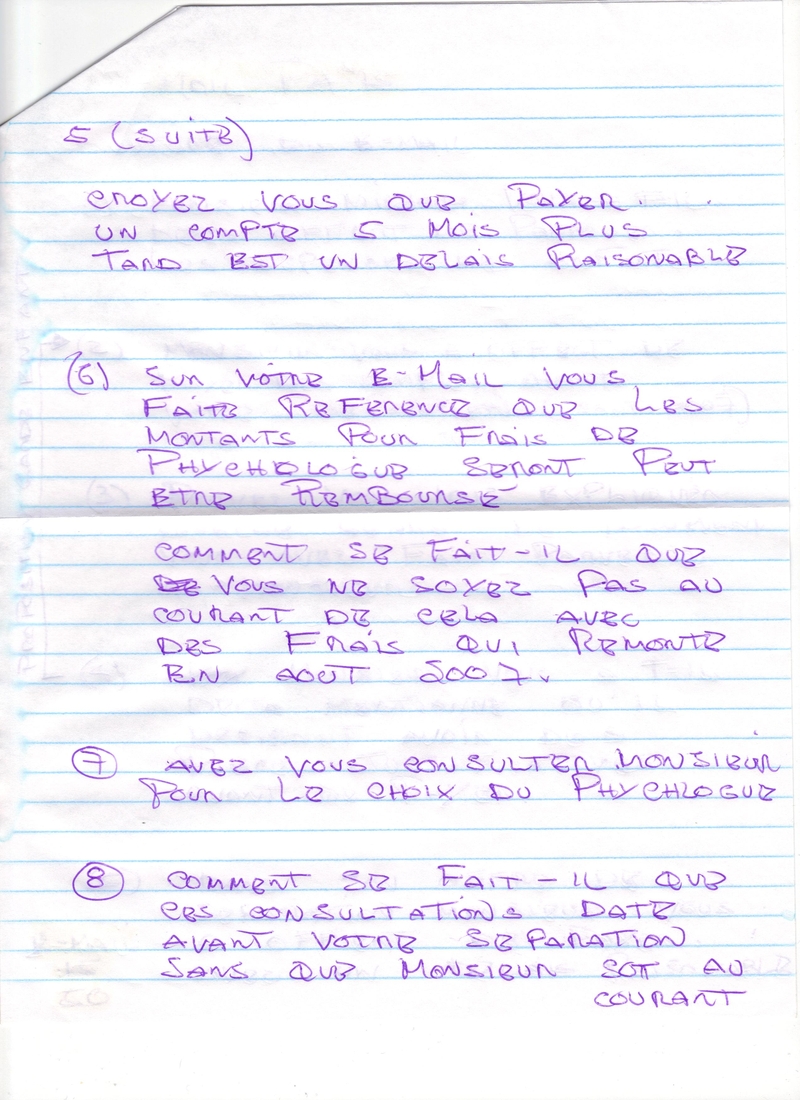 5 (SUITE)
CROYEZ VOUS QUE PAYER.
UN COMPTE 5 MOIS PLUS
TARD EST UN DELAIS RAISONABLE
(6) SUR VOTRE E-MAIL VOUS
FAITE REFERENCE QUE LES
MONTANTS POUR FRAIS DE
PHYCHOLOGUE SERONT PEUT
ETRE REMBOURSÉ
COMMENT SE FAIT-IL QUE
DE VOUS NE SOYEZ PAS AU
COURANT DE CELA AVEC
DES FRAIS QUI REMONTE
EN AOUT 2007.
7 AVEZ VOUS CONSULTER MONSIEUR
POUR LE CHOIX DU PHYCHLOGUE
8 COMMENT SE FAIT-IL QUE
CES CONSULTATIONS DATE
AVANT VOTRE SEPARATION
SANS QUE MONSIEUR SOT AU
COURANT